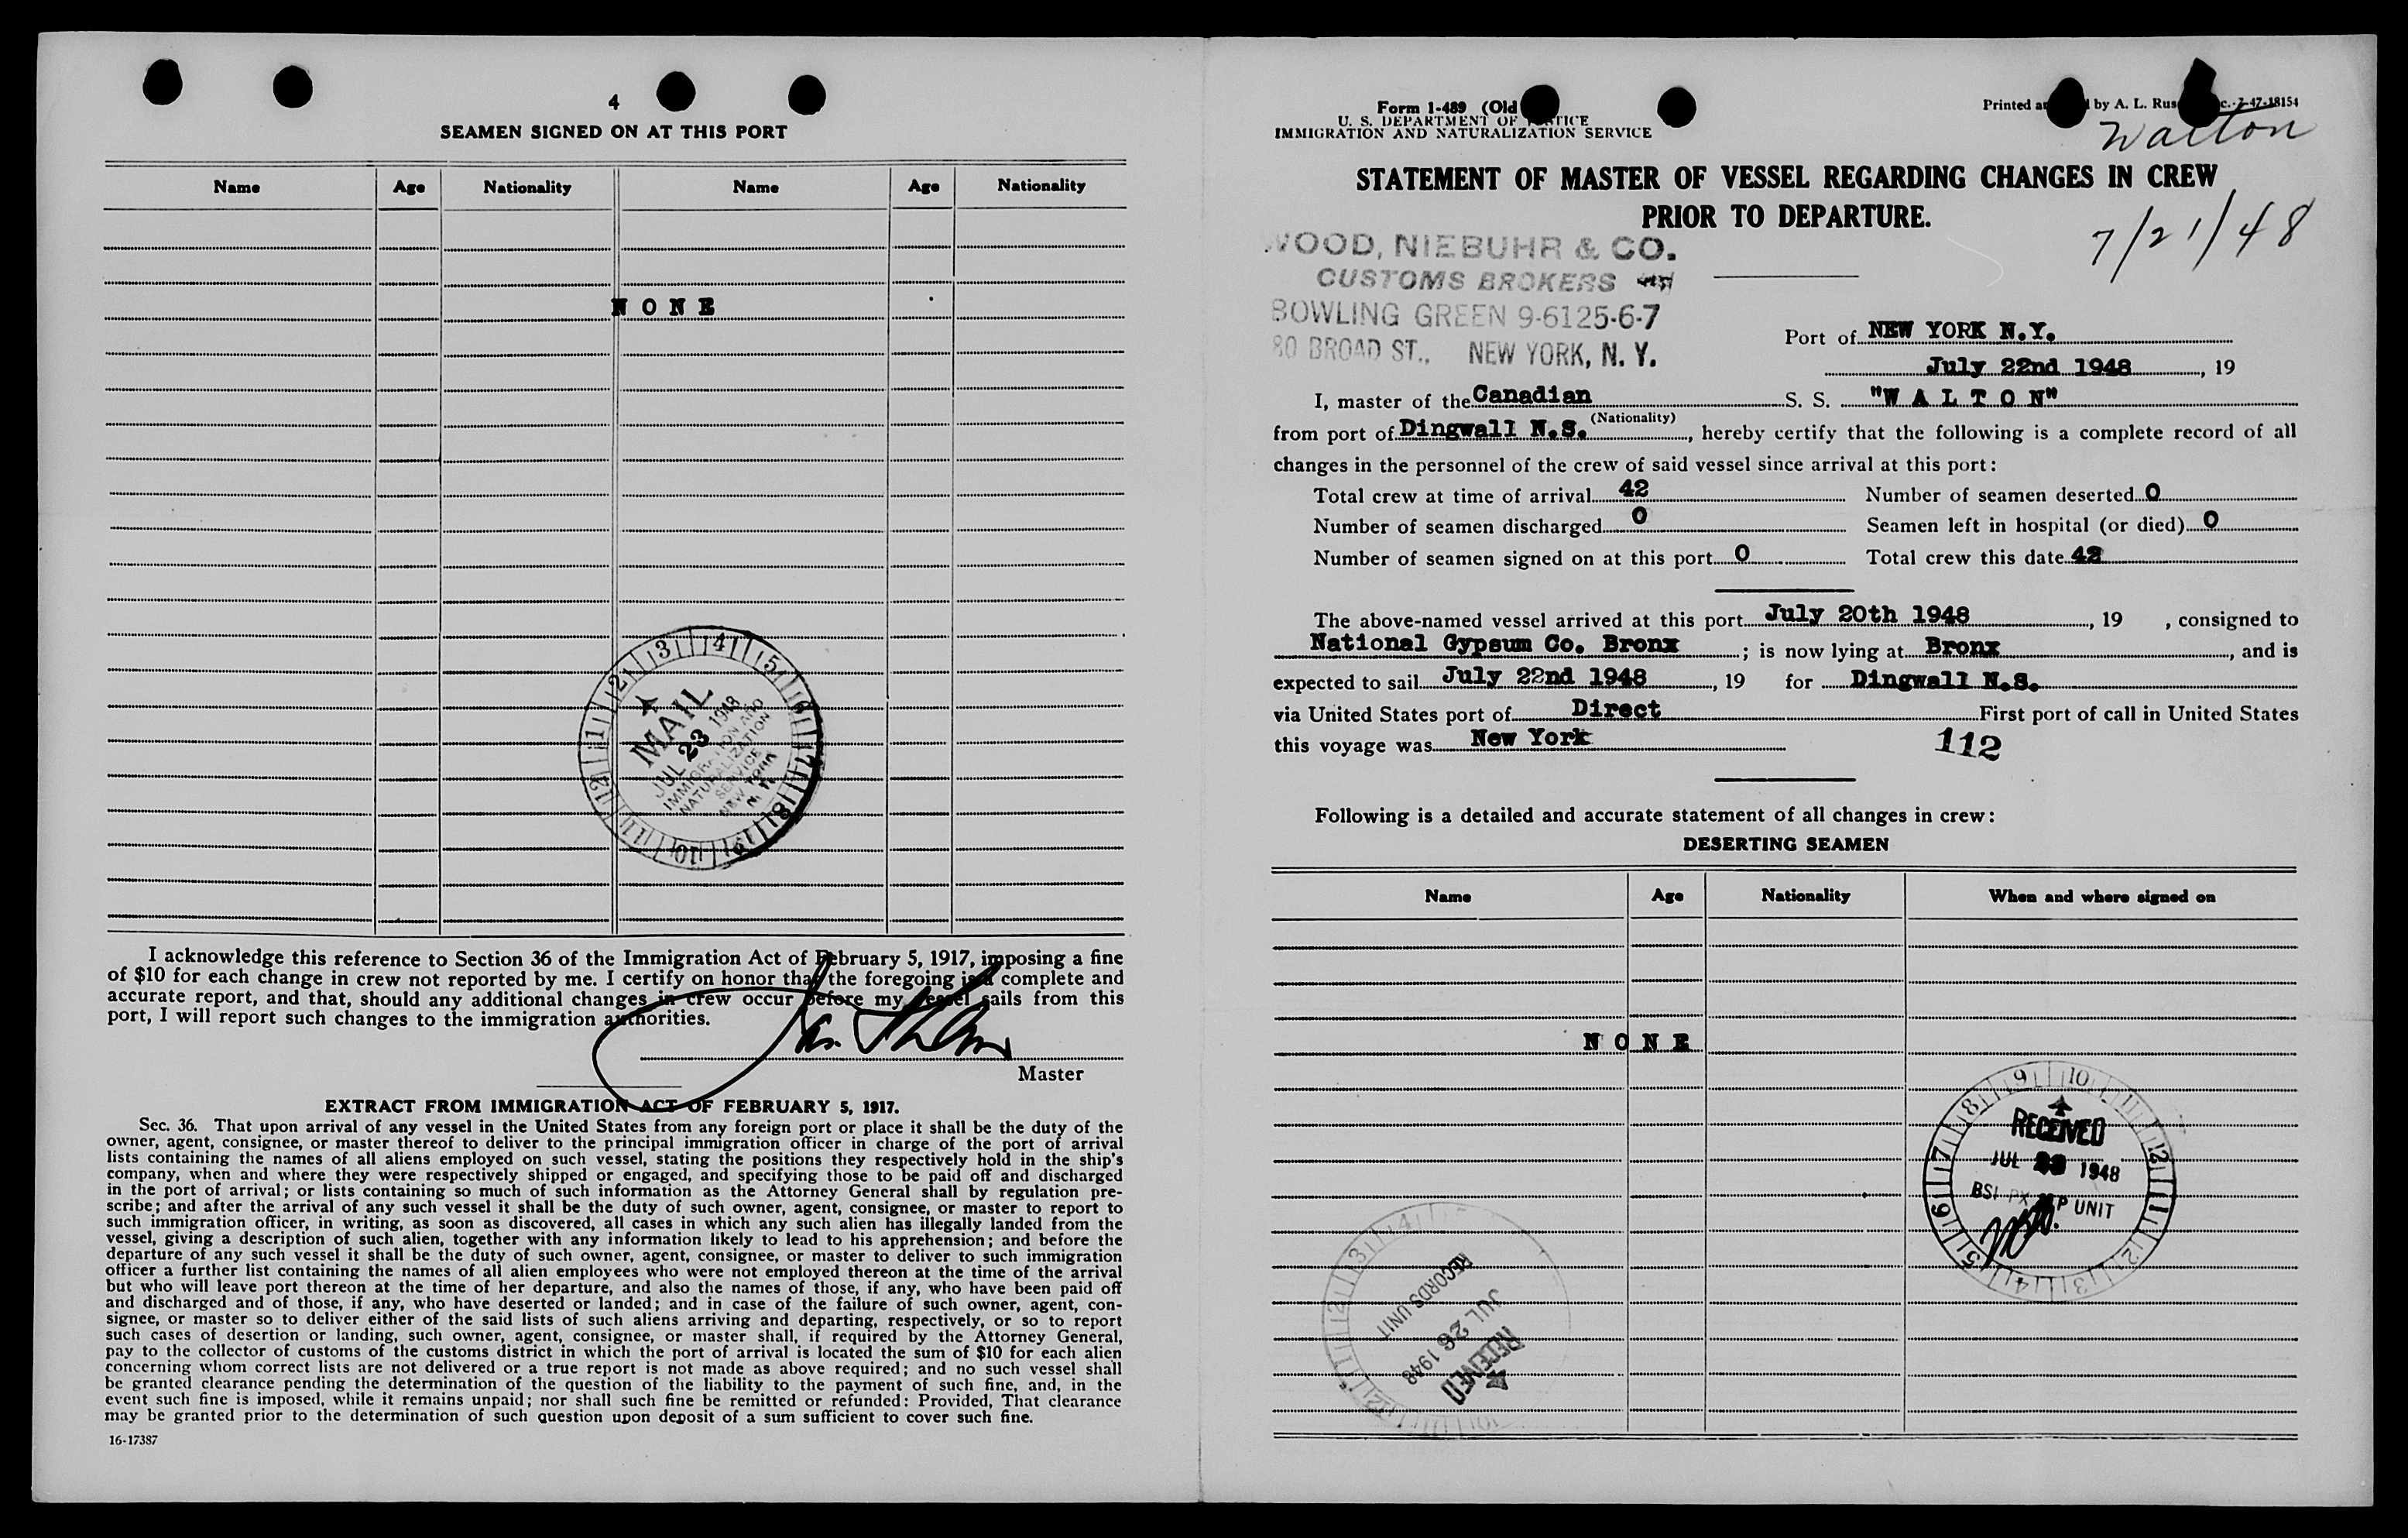 4
SEAMEN SIGNED ON AT THIS PORT
Name Age Nationality Name Age Nationality
NONE
MAIL
JUL 23 1948
IMMIGRATION AND
NATURALIZATION
SERVICE
NEW YORK
N. Y.
I acknowledge this reference to Section 36 of the Immigration Act of February 5, 1917, imposing a fine
of $10 for each change in crew not reported by me. I certify on honor that the foregoing is a complete and
accurate report, and that, should any additional changes in crew occur before my vessel sails from this
port, I will report such changes to the immigration authorities.
Master
EXTRACT FROM IMMIGRATION ACT OF FEBRUARY 5, 1917.
Sec. 36. That upon arrival of any vessel in the United States from any foreign port or place it shall be the duty of the
owner, agent, consignee, or master thereof to deliver to the principal immigration officer in charge of the port of arrival
lists containing the names of all aliens employed on such vessel, stating the positions they respectively hold in the ship's
company, when and where they were respectively shipped or engaged, and specifying those to be paid off and discharged
in the port of arrival; or lists containing so much of such information as the Attorney General shall by regulation pre-
scribe; and after the arrival of any such vessel it shall be the duty of such owner, agent, consignee, or master to report to
such immigration officer, in writing, as soon as discovered, all cases in which any such alien has illegally landed from the
vessel, giving a description of such alien, together with any information likely to lead to his apprehension; and before the
departure of any such vessel it shall be the duty of such owner, agent, consignee, or master to deliver to such immigration
officer a further list containing the names of all alien employees who were not employed thereon at the time of the arrival
but who will leave port thereon at the time of her departure, and also the names of those, if any, who have been paid off
and discharged and of those, if any, who have deserted or landed; and in case of the failure of such owner, agent, con-
signee, or master so to deliver either of the said lists of such aliens arriving and departing, respectively, or so to report
such cases of desertion or landing, such owner, agent, consignee, or master shall, if required by the Attorney General,
pay to the collector of customs of the customs district in which the port of arrival is located the sum of $10 for each alien
concerning whom correct lists are not delivered or a true report is not made as above required; and no such vessel shall
be granted clearance pending the determination of the question of the liability to the payment of such fine, and, in the
event such fine is imposed, while it remains unpaid; nor shall such fine be remitted or refunded: Provided, That clearance
may be granted prior to the determination of such question upon deposit of a sum sufficient to cover such fine.
16-17387
Form I-489 (Old
U. S. DEPARTMENT OF JUSTICE
IMMIGRATION AND NATURALIZATION SERVICE
Printed by A. L. 7-47-18154
Walton
STATEMENT OF MASTER OF VESSEL REGARDING CHANGES IN CREW
PRIOR TO DEPARTURE.
7/21/48
WOOD, NIEBUHR & CO.
CUSTOMS BROKERS
BOWLING GREEN 9-6125-6-7
80 BROAD ST., NEW YORK, N. Y.
Port of NEW YORK N.Y.
July 22nd 1948, 19
I, master of the Canadian S. S. "WALTON"
(Nationality)
from port of Dingwall N.S., hereby certify that the following is a complete record of all
changes in the personnel of the crew of said vessel since arrival at this port:
Total crew at time of arrival 42 Number of seamen deserted 0
Number of seamen discharged 0 Seamen left in hospital (or died) 0
Number of seamen signed on at this port 0 Total crew this date 42
The above-named vessel arrived at this port July 20th 1948, 19 , consigned to
National Gypsum Co. Bronx; is now lying at Bronx, and is
expected to sail July 22nd 1948, 19 for Dingwall N.S.
via United States port of Direct First port of call in United States
this voyage was New York
112
Following is a detailed and accurate statement of all changes in crew:
DESERTING SEAMEN
Name Age Nationality When and where signed on
NONE
RECEIVED
JUL 1948
BSI UNIT
RECORDS UNIT
JUL 26 1948
RECEIVED